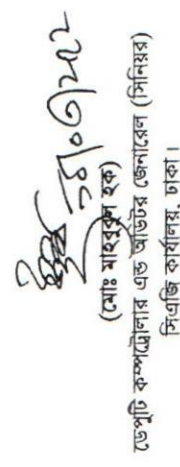 (মোঃ মাহবুবুল হক)
ডেপুটি কম্পট্রোলার এন্ড অডিটর জেনারেল (সিনিয়র)
সিএজি কার্যালয়, ঢাকা।